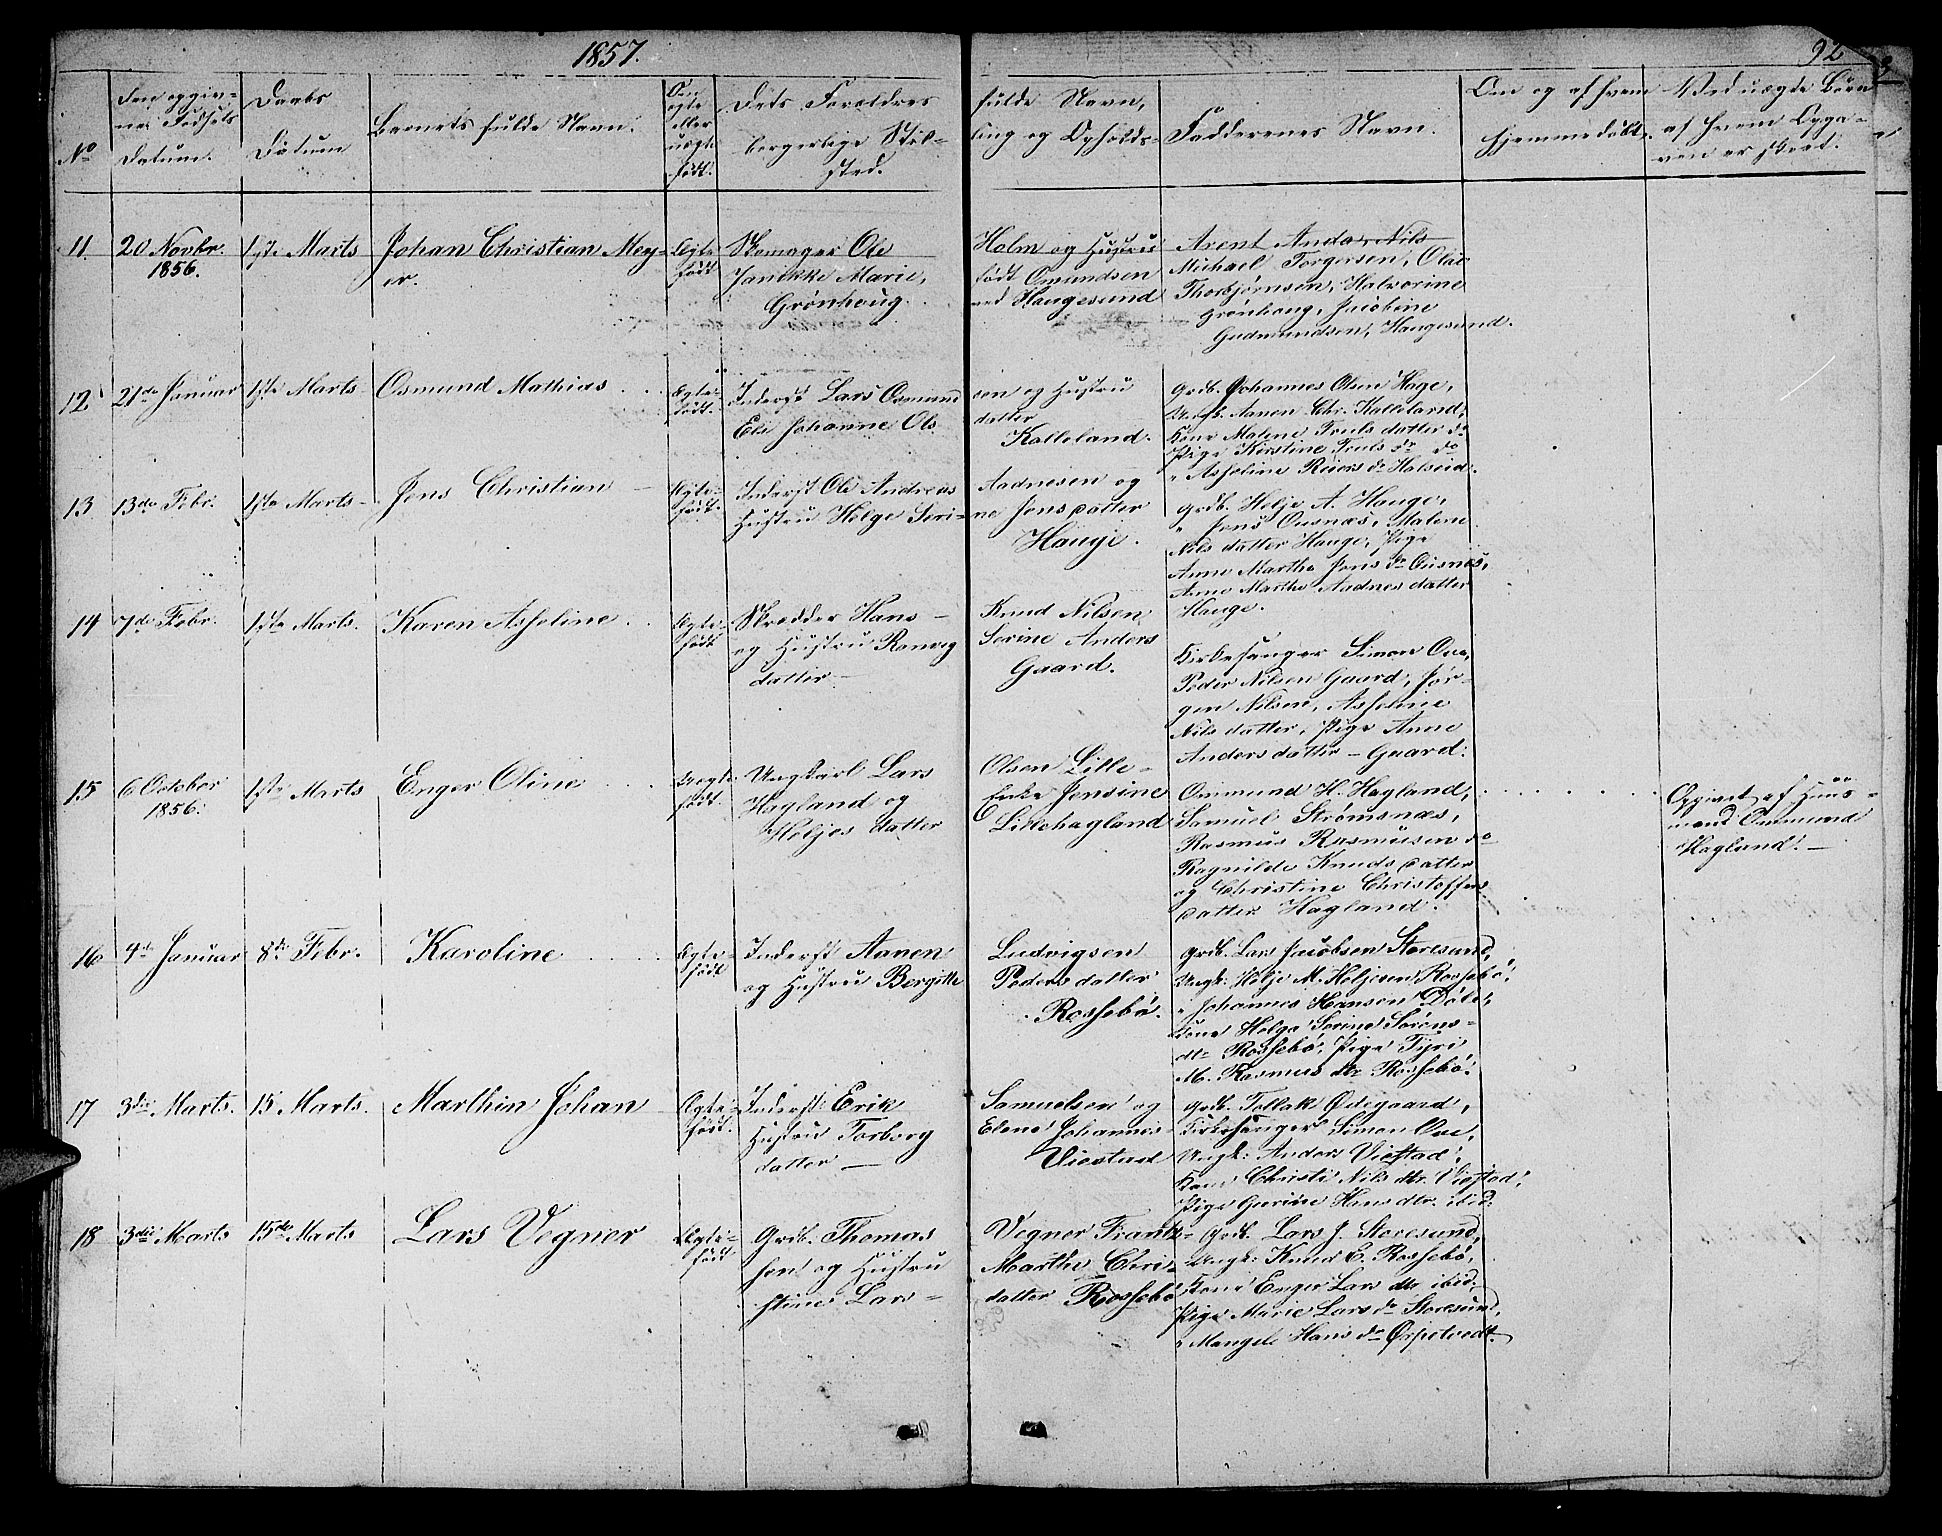 1857.
92
No
Den opgiv-
ne Fødsels
Datum.
Daabs
Datum
Barnets fulde Navn.
Om
ægte
eller
uægte
født.
Dets Forældres
borgerlige Stil-
sted.
fulde Navn,
ling og Opholds-
Faddernes Navn.
Om og af hvem
hjemmedøbt.
Ved uægte Børn
af hvem Opga-
ven er skeet.
11.
20 Novbr.
1856.
1ste Marts
Johan Christian Mey-
er.
Ægte
født
Skomager Ole
Janikke Marie,
Grønhoug.
Holm og Hustru
født Omundsen
ved Haugesund
Arent Anda, Nils
Michael Torgersen, Olai
Thorbjørnsen, Halvorine
Grønhoug, Jacobine
Gudmundsen, Haugesund.
12
21de Januar
1ste Marts
Osmund Mathias
Ægte-
født.
Inderst Lars Osmund
Eli Johanne Ols
sen og Hustru
datter
Kalleland.
Grdb. Johannes Olsen Hage,
Ungk. Aanen Chr. Kalleland,
Kone Malene Truls datter do
Pige Kirstine Truls dr do
" Asseline Reiers dr Halseid.
13
13de Febr.
1ste Marts
Jens Christian
Ægte-
født.
Inderst Ole Andreas
Hustru Helge Seri-
Aadnesen og
ne Jensdatter
Hauge.
Grdb. Helje A. Hauge,
" Jens Ousnæs, Malene
Nils datter Hauge, Pige
Anne Martha Jens dr Ousnes,
Anne Marthe Aadnes datter
Hauge.
14
7de Febr.
1ste Marts.
Karen Asseline
Ægte-
født
Skrædder Hans
og Hustru Ranveg
datter
Knud Nilsen
Serine Anders
Gaard.
Kirkesanger Simon Ove,
Peder Nilsen Gaard, Jør-
gen Nilsen, Asseline
Nils datter, Pige Anne
Anders datter - Gaard.
15
6 October
1856.
1ste Marts
Enger Oline
Uægte
født.
Ungkarl Lars
Hagland og
Heljes datter
Olsen Lille-
Enke Jensine
Lillehagland
Osmund H. Hagland,
Samuel Strømsnæs,
Rasmus Rasmussen do
Ragnilde Knuds datter
og Christine Christoffers-
datter Hagland.
Opgivet af Huus-
mand Osmund
Hagland.
16
4de Januar
8de Febr.
Karoline
Ægte-
født
Inderst Aanen
og Hustru Bergitte
Ludvigsen
Peders datter
Rossebø.
Grdb. Lars Jacobsen Storesund,
Ungk. Helje M. Heljesen Rossebø,
" Johannes Hansen Døle,
Kone Helga Serine Sørens-
dtr Rossebø, Pige Tyri
M. Rasmus dtr Rossebø.
17
3die Marts.
15 Marts.
Marthin Johan
Ægte-
født.
Inderst Erik
Hustru Torborg
datter
Samuelsen og
Elene Johannes-
Viestad
Grdb. Tollak Ødegaard,
Kirkesanger Simon Ove,
Ungk: Anders Viestad,
Kone Christi Nils dtr. Viestad,
Pige Gurine Hans dtr. ibid.
18
3die Marts
15de Marts
Lars Vegner
Ægte-
født
Grdb. Thomas
sen og Hustru
stine Lars-
Vegner Frantz-
Marthe Chri-
datter Rossebø
Grdb. Lars J. Storesund,
Ungk: Knud E. Rossebø,
Kone Enger Lars dtr ibid,
Pige Marie Lars dr Storesund,
" Mangele Hans dr Ørpetvedt.